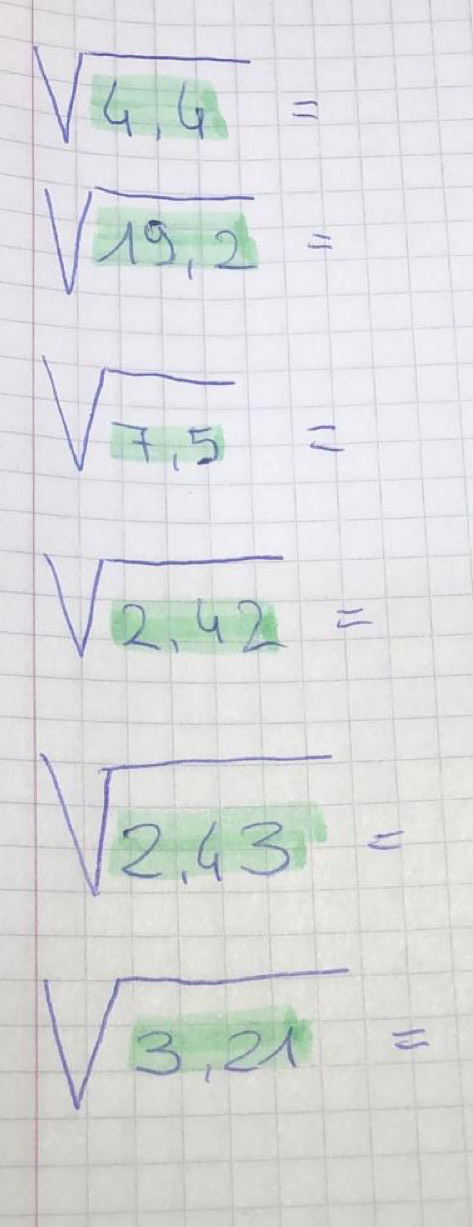 √4,4 =
√19,2 =
√7,5 =
√2,42 =
√2,43 =
√3,21 =